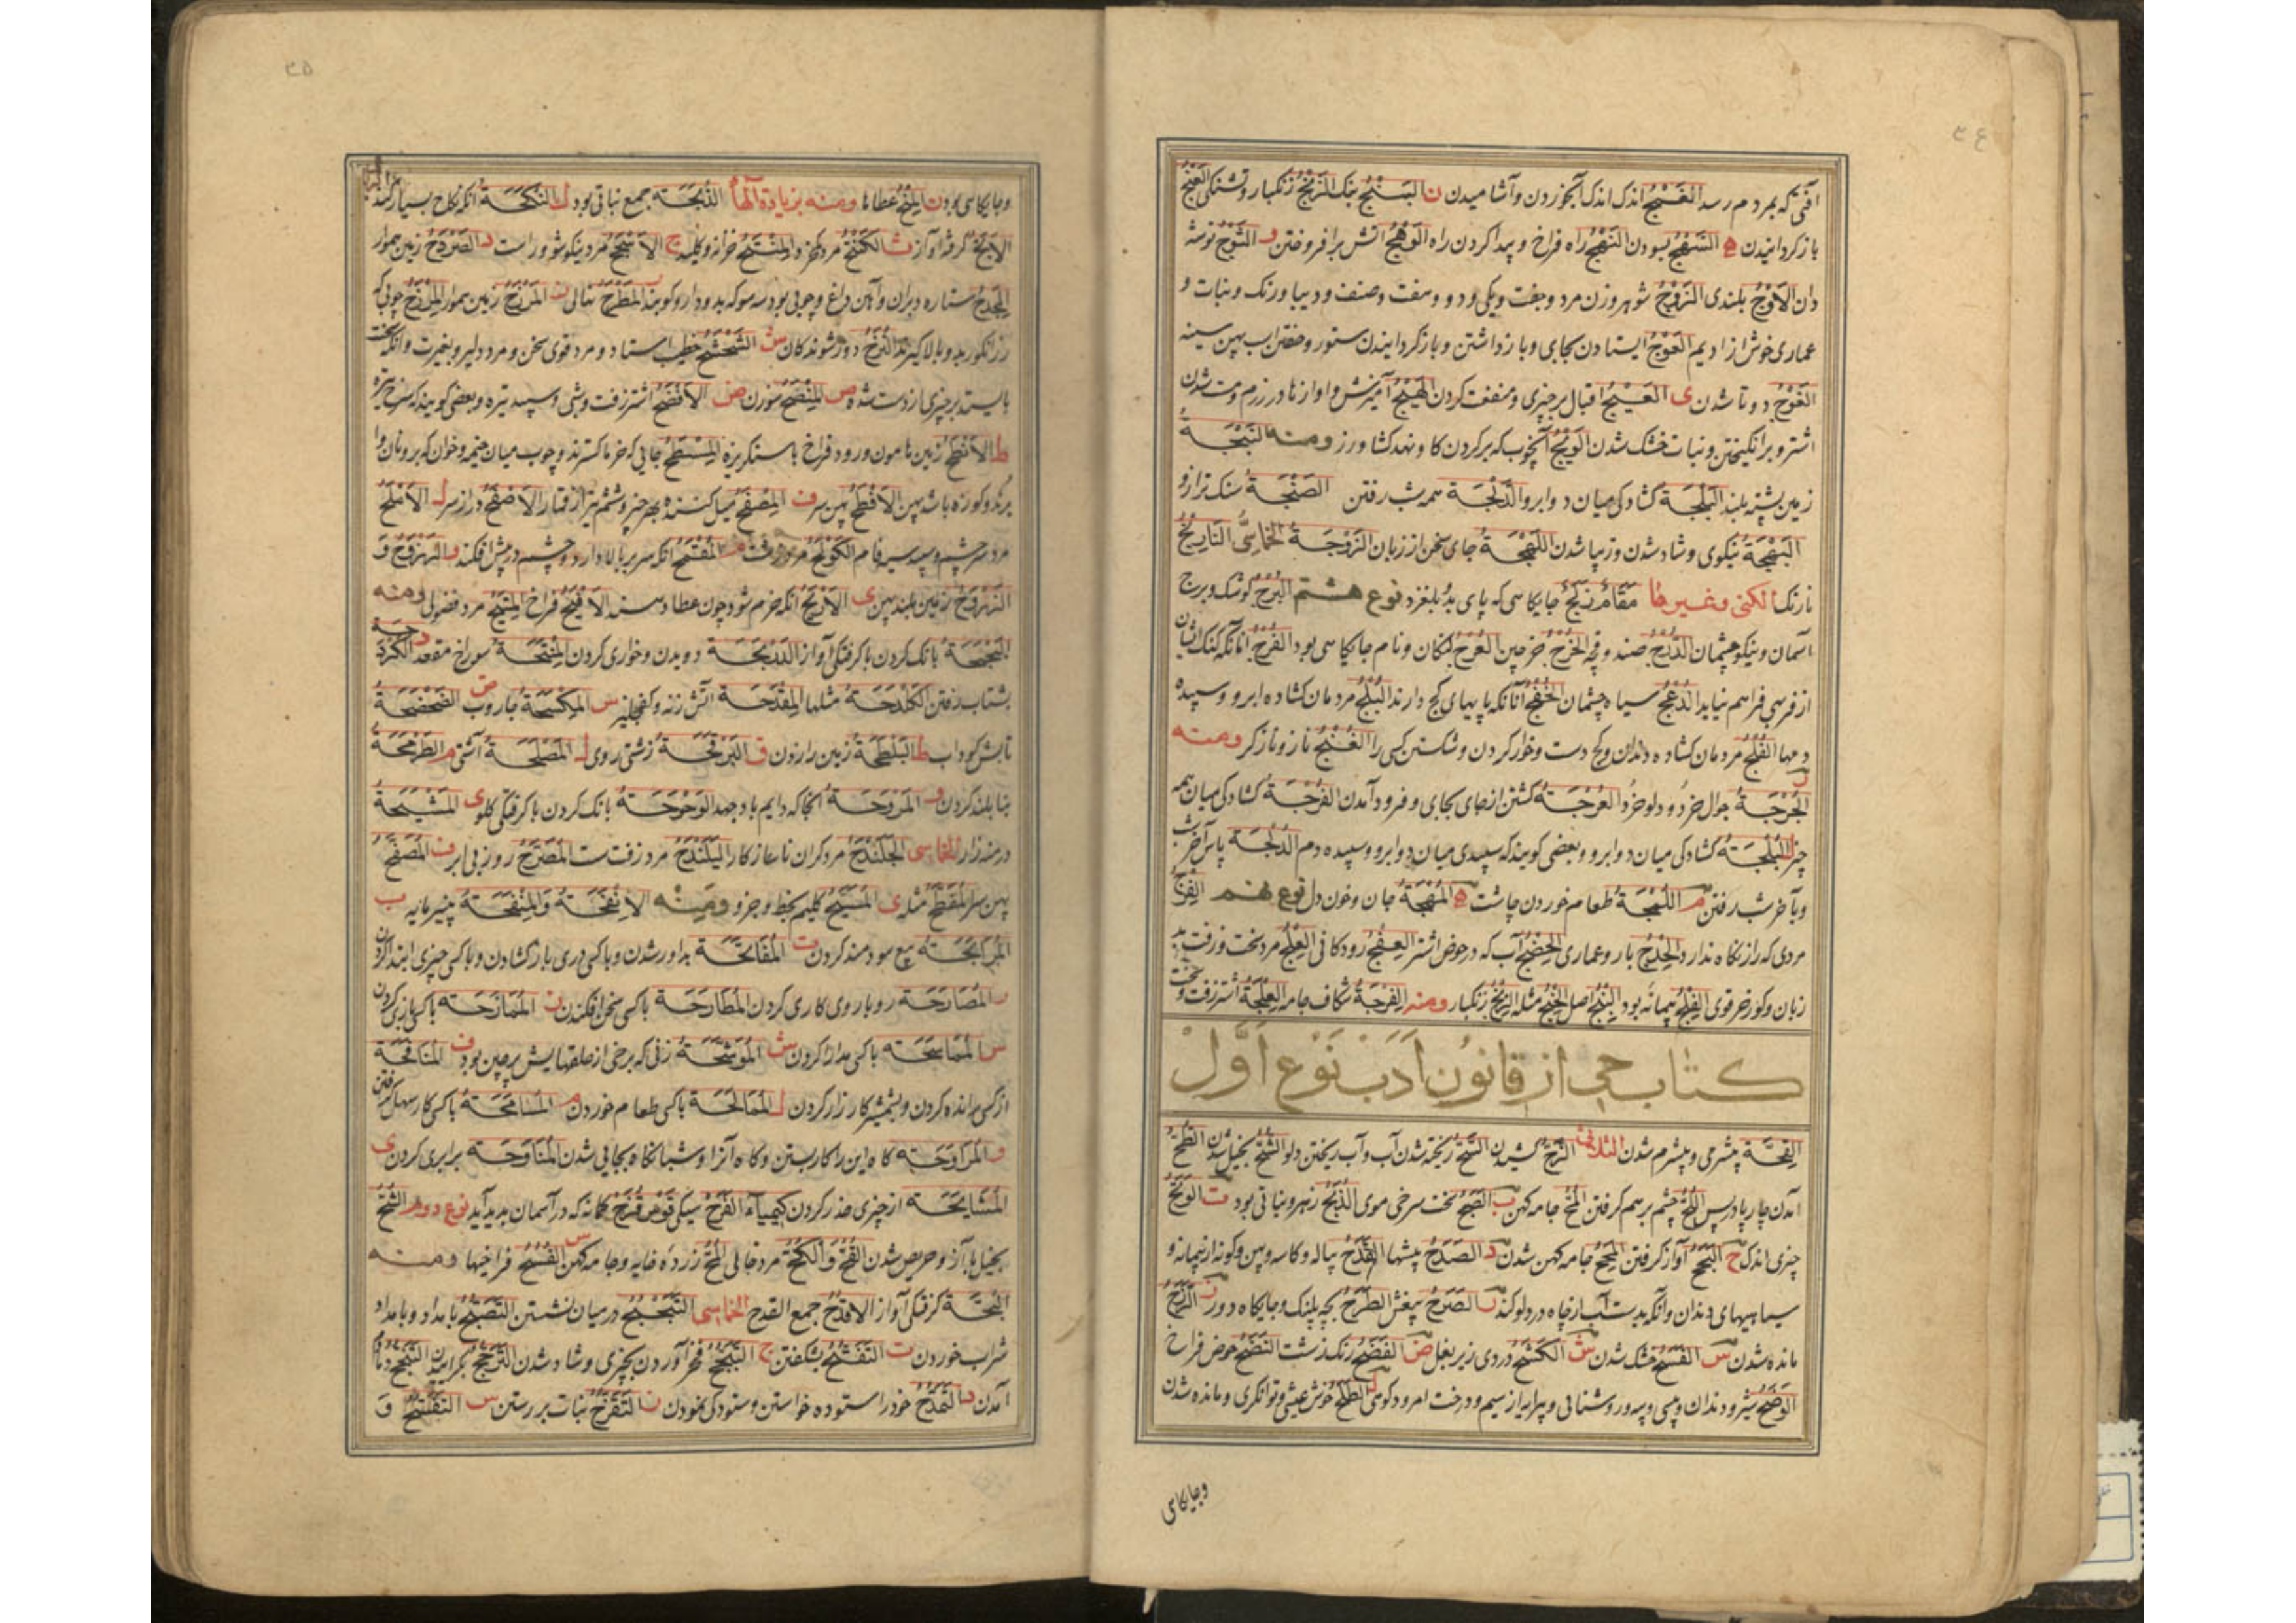 آفتی که بمردم رسد الغَمْجُ اندک اندک آبخوردن و آشامیدن ن البَنْجُ بنک الزَنْجُ زنکبار و تشنکی العَنْجُ
بازکردانیدن ه السَهْجُ بسودن النَهْجُ راه فراخ و پیدا کردن راه الوَهْجُ آتش برافروختن و التَوْجُ
دان الاَوْجُ بلندی الزَوْجُ شوهر و زن مرد و جفت و یکی و دو و صنف و دیبا و رنک و نبات و
عماری خوش از ادیم العَوْجُ ایستادن بجای و باز داشتن و بازکردانیدن ستور پهن سینه
الغَوْجُ دوتا شدن ی العَیْجُ اقبال بر چیزی و منفعت کردن الهَیْجُ آمیزش و اوازها در رزم و مست شدن
اشتر و برانکیختن و نبات خشک شدن الوَیْجُ آنچوب که بر کردن کاو نهد کشاورز ومنه النَبْجَة
زمین پشته بلند البَلْجَة کشادکی میان دو ابرو الدَلْجَة همه شب رفتن الصَنْجَة سنک ترازو
البَهْجَة نیکوی و شاد شدن و زیبا شدن اللَهْجَة جای سخن از زبان الزَوْجَة الخماسی النَارَنْجُ
نارنک الکنی وغیرها مَقَام زَلْجُ جایکاهی که پای بدو بلغزد نوع هشتم البُرْجُ کوشک و برج
آسمان و نیکو چشمان الدُرْجُ صندوقچه الخُرْجُ خرجین العُرْجُ لنکان و نام جایکاهی بود الفُرْجُ
از فربهی فراهم نیاید الدُعْجُ سیاه چشمان الخُفْجُ آنانکه پایهای کج دارند البُلْجُ مردمان کشاده ابرو و سپیده
دمها الفُلْجُ مردمان کشاده دندان و کج دست و خوار کردن و شکستن کسی را الغُنْجُ ناز و نازکر ومنه
الخُرْجَة جوال خرد و دلو خرد العُرْجَة کشتن از جای بجای و فرود آمدن الفُرْجَة کشادکی میان همه
چیز البُلْجَة کشادکی میان دو ابرو و بعضی کویند که سپیدی میان دو ابرو و سپیده دم الدُلْجَة پاس آخر شب
و بآخر شب رفتن م اللُمْجَة طعام خوردن چاشت ه المُهْجَة جان و خون دل نوع نهم الفِرْجُ
مردی که راز نکاه ندارد الحِدْجُ بار و عماری الحِضْجُ آب که در حوض اشتر العِفْجُ رودکانی العِلْجُ مرد سخت و زفت بد
زبان و کورخر قوی الفِلْجُ پیمانه بود البِنْجُ اصل الخِنْجُ مثله الزِنْجُ زنکبار ومنه الفِرْجَة شکاف جامه العِلْجَة اشتر زفت و سخت
کتاب حی از قانون ادب نوع اول
القِحَّة بیشرمی و بیشرم شدن الثلاثی النَزَحُ السَحُّ ریخته شدن آب و آب ریختن دلو الشَحُّ بخیل شدن
آمدن چارپا در پس اللَحُّ چشم بر هم کرفتن المَحُّ جامه کهن ب الصَبَحُ سخت سرخی موی الذَبَحُ زهر و نباتی بود ت الوَتَحُ
چیزی اندک ح البَحَحُ آواز کرفتن المَحَحُ جامه کهن شدن د الصَدَحُ پیشها القَدَحُ پیاله و کاسه و پهن و کونه از پیمانه و
سیاهیهای دندان و آنکه بدست آب از چاه در دلو کند ر الصَرَحُ بیغش الطَرَحُ بچه پلنک و جایکاه دور ز الرَزَحُ
مانده شدن س الفَسَحُ خشک شدن ش الکَشَحُ دردی زیر بغل ض الفَضَحُ رنک زشت النَضَحُ حوض فراخ
الوَضَحُ شیر و دندان و پیسی و روشنائی و پیرایه از سیم و درخت امرود کوهی ل الطَلَحُ خوش عیشی و توانکری و مانده شدن
وجایکاهی
وجایکاهی بود ن المِنَحُ عطاها ومنه بزیادة الهاء الذُبَحَة جمع نباتی بود ک النُکَحَة آنکه نکاح بسیار کند
الاَبَحُّ کرفته آواز ث الکُنْتُحُ مرد و المِفْتَحُ خزانه و کلید ج الاَسْجَحُ مرد نیکو و راست د الصَرْدَحُ زمین هموار
المِجْدَحُ ستاره دبران و چوبی بود سه سو که بدو دارو کوبند المَطْرَحُ نهالی المَرْزَحُ زمین هموار المِرْزَحُ چوبی که
رز انکور بدو بالا کیرند النُزَّحُ دور شوندکان ش الشَحْشَحُ خطیب استاد و مرد قوی سخن و مرد دلیر و بغیرت و آنکه سخت
بایستد بر چیزی از دست شده ص المِنْصَحُ سوزن ض الاَفْضَحُ اشتر زفت و سپید تیره و بعضی کویند که سرخ تیره
ط الاَبْطَحُ زمین هامون و رود فراخ با سنکریزه المِسْطَحُ جایی که خرما کسترند و چوب میان خیمه و خوان که بر و نان وا
برند و کوزه باشد پهن الاَفْطَحُ پهن سر ف المِصْفَحُ میل کننده بهر چیز و ششم تیر از قمار الاَصْفَحُ دراز سر ل الاَمْلَحُ
مرد سبز چشم و سپید سیه فام الکَوْلَحُ مرد زشت م المُقْمَحُ آنکه سر بر بالا دارد و چشم در پیش افکند و القِرْوَاحُ وَ
الزِرْوَحُ زمین بلند پهن ی الاَرْیَحُ آنکه خرم شود چون عطا دهد الاَفْیَحُ فراخ المِتْیَحُ مرد فضول ومنه
البَحْبَحَة بانک کردن با کرفتکی آواز الدَرْبَحَة دویدن و خواری کردن المَفْتَحَة سوراخ مقعد د الکَرْدَحَة
بشتاب رفتن الکَلْدَحَة مثلها المِقْدَحَة آتش زنه و کفچلیز س المِکْسَحَة جاروب ض الضَحْضَحَة
تابش کوراب ط البَلْطَحَة زمین را زدن ق البَرْقَحَة زشتی روی ل المَصْلَحَة آشتی م الطَرْمَحَة
بنا بلند کردن و المَرْوَحَة آنجا که دایم باد جهد الوَحْوَحَة بانک کردن با کرفتکی کلو ی المَشْیَحَة
درمنه زار الخماسی الجَلَنْدَحُ مرد کران ناساز کار البَلَنْدَحُ مرد زفت سست المُصَرَّحُ روز بی ابر ف المُصَفَّحُ
پهن سر المُفَطَّحُ مثله ی المُسَیَّحُ کلیم بخط و جزو ومنه الاِنْفَحَة وَالمِنْفَحَة پنیرمایه ب
المُرَابَحَة بیع سودمند کردن ت المُفَاتَحَة بداور شدن و با کسی دری باز کشادن و با کسی چیزی ابتدا کردن
ر المُصَارَحَة رو باروی کاری کردن المُطَارَحَة با کسی سخن افکندن ز المُمَازَحَة با کسی بازی کردن
س المُمَاسَحَة با کسی مدارا کردن ش المُوَشَّحَة زنی که برخی از حلقهایش بر جبین بود ف المُنَافَحَة
از کسی رانده کردن و بشمشیر کارزار کردن ل المُمَالَحَة با کسی طعام خوردن م المُسَامَحَة با کسی کار سهل فرا کرفتن
و المُرَاوَحَة کاه این را کار بستن و کاه آنرا و شبانکاه بجایی شدن المُنَاوَحَة برابری کردن ی
المُشَایَحَة از چیزی حذر کردن کیمیاء الفَرَح سیکی قَوْس قُزَحَ کمانه که در آسمان پدید آید نوع دوم الشُحُّ
بخیل با آز و حریص شدن القُحُّ وَالکُحُّ مرد خالی المُحُّ زرده خایه و جامه کهن س الفُسُحُ فراخیها ومنه
البُحَّة کرفتکی آواز الاَقْدُحُ جمع القدح الخماسی التَبَحْبُحُ در میان نشستن التَصَبُّحُ بامداد و بامداد
شراب خوردن ت التَفَتُّحُ بشکفتن ج التَبَجُّحُ فخر آوردن بچیزی و شاد شدن التَرَجُّحُ بکراییدن
آمدن د التَمَدُّحُ خود را ستوده خواستن و ستودکی نمودن ر التَقَرُّحُ نبات بر رستن س التَفَسُّحُ وَ